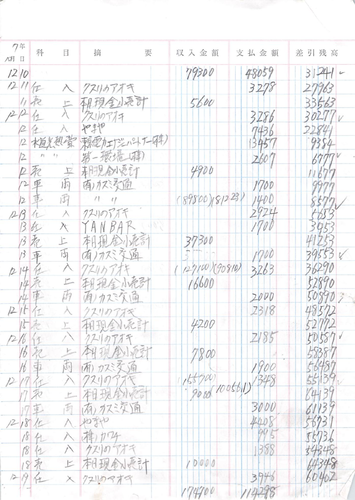 7年 科目 摘要 収入金額 支払金額 差引残高
12 10 79300 48059 31241
12 11 仕入 クスリのアオキ 3278 27963
11 売上 本日現金小計 5600 33563
12 12 仕入 クスリのアオキ 3286 30277
12 仕入 やまや 7436 22841
12 13457 9384
12 〃 〃 第一環境(株) 2607 6777
12 売上 本日現金小計 4900 11677
12 車両 (有)カスミ交通 1700 9977
12 車両 〃 (189800)(181223) 1400 8577
12 13 仕入 クスリのアオキ 2924 5653
13 仕入 YANBAR 1700 3953
13 売上 本日現金小計 37300 41253
13 車両 (有)カスミ交通 1700 39553
12 14 仕入 クスリのアオキ (127100)(90810) 3263 36290
14 売上 本日現金小計 16600 52890
14 車両 (有)カスミ交通 2000 50890
12 15 仕入 クスリのアオキ 2318 48572
15 売上 本日現金小計 4200 52772
12 16 仕入 クスリのアオキ 2185 50587
16 売上 本日現金小計 7800 58387
16 車両 (有)カスミ交通 1900 56487
12 17 仕入 クスリのアオキ 1348 55139
17 売上 本日現金小計 9000 64139
17 車両 (有)カスミ交通 3000 61139
12 18 仕入 やまや 4408 56731
18 仕入 995 55736
18 仕入 クスリのアオキ 1388 54348
18 売上 本日現金小計 10000 64348
12 19 仕入 クスリのアオキ 3946 60402
174700 114298